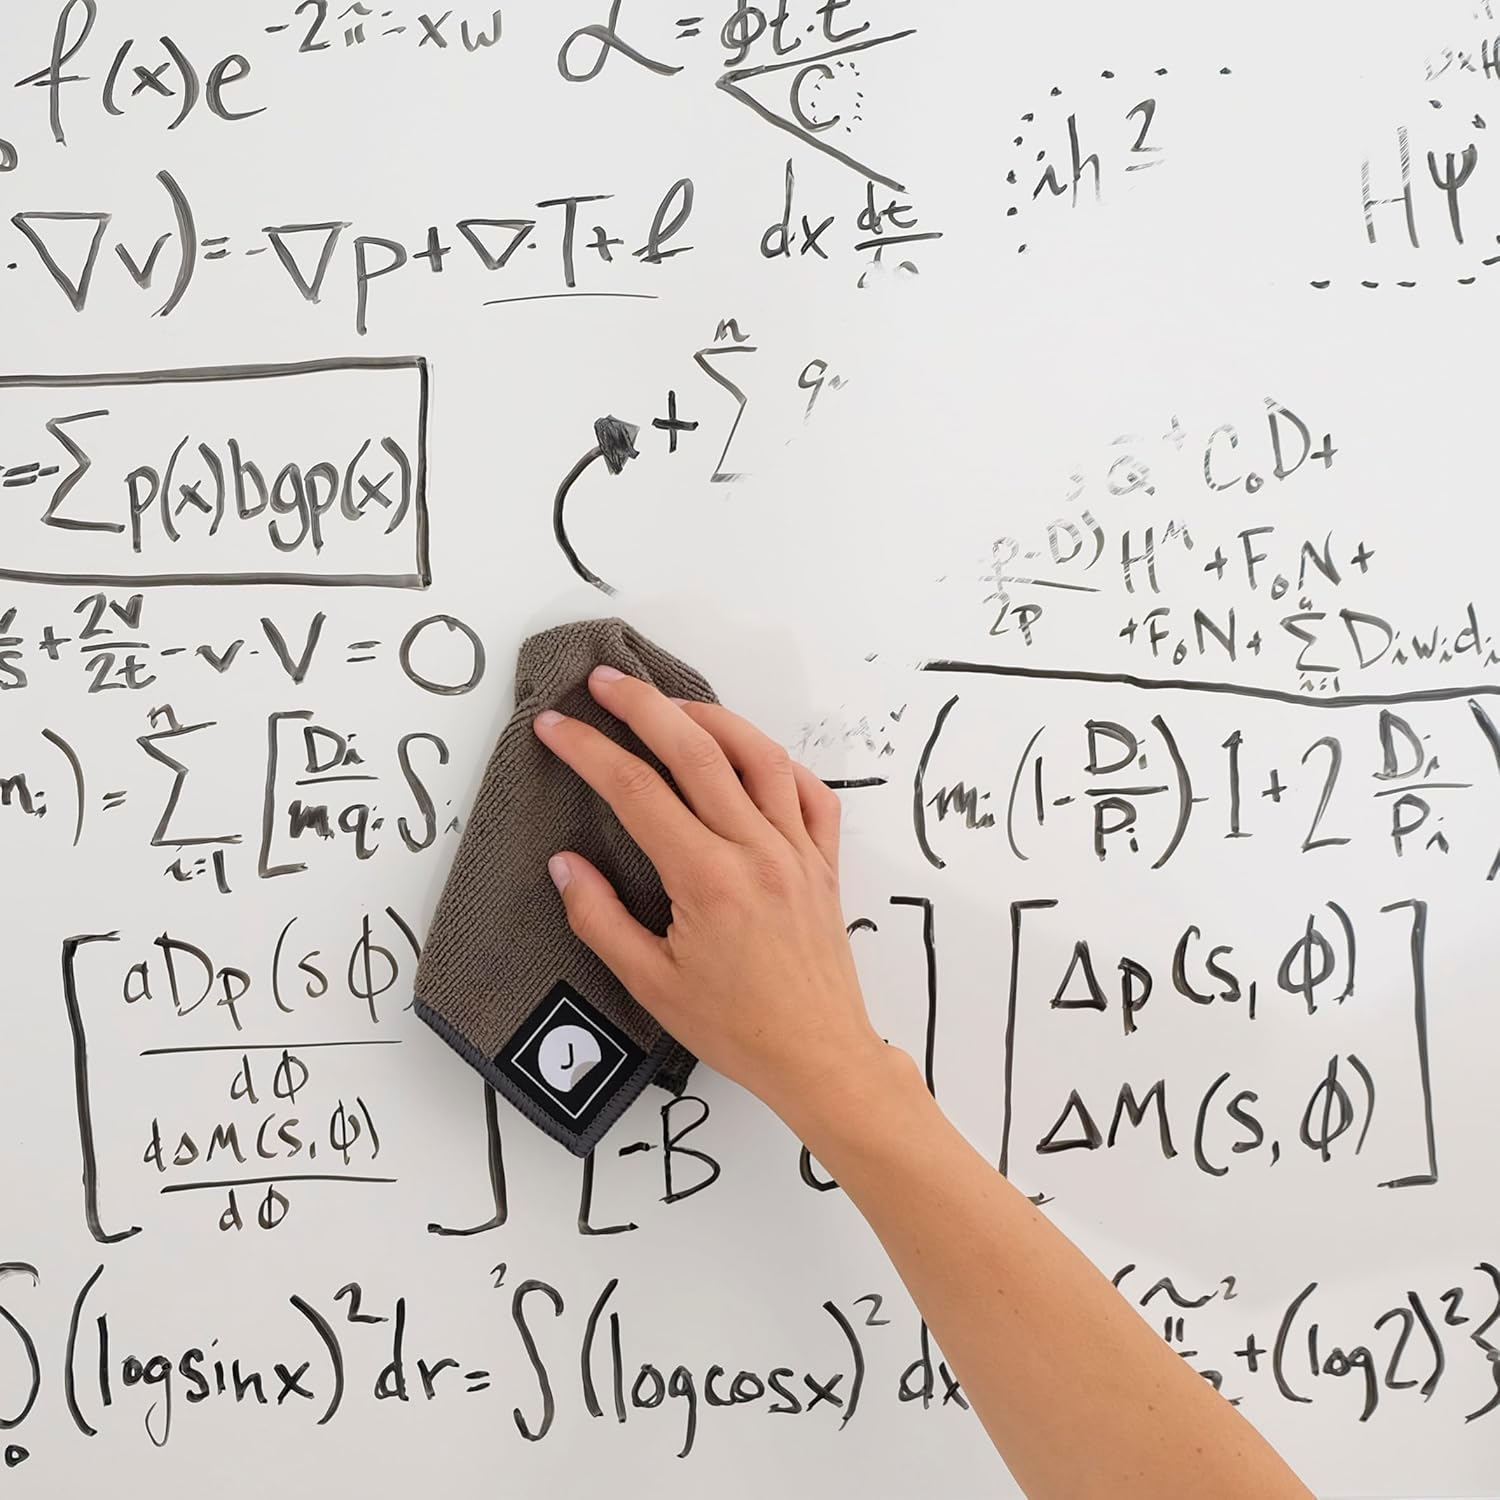 f(x)e^-2πi-xw
α = ϕt.t / C
iħ 2
Hψ
.∇v)=-∇p+∇.T+f
dx dt
n
+∑ q
=-∑p(x)bgp(x)
Q + C₀D+
P-D) / 2P Hᴹ +F₀N+
+F₀N+ ∑ i=1 Dᵢwᵢdᵢ
+ 2v/2t - v.V = O
nᵢ) = n ∑ i=1 [Dᵢ/mqᵢ ∫ᵢ
(mᵢ(1-Dᵢ/Pᵢ)-1+2 Dᵢ/Pᵢ
aDp(sϕ)
dϕ
dΔM(s,ϕ)
dϕ
J
-B
Δp(s,ϕ)
ΔM(s,ϕ)
∫(logsinx)²dr= ²∫(logcosx)² dx
+(log2)²}